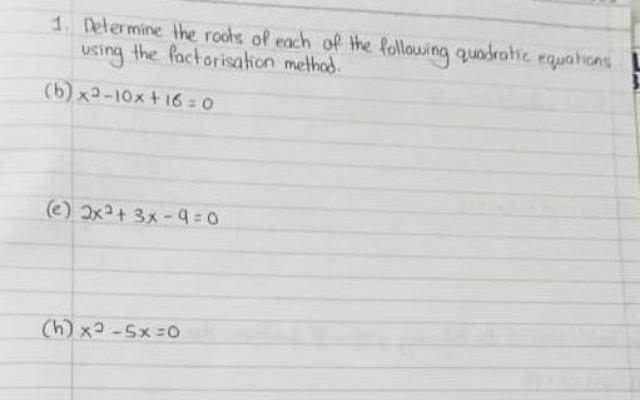 1. Determine the roots of each of the following quadratic equations
using the factorisation method.
(b) x²-10x+16=0
(e) 2x²+3x-9=0
(h) x²-5x=0